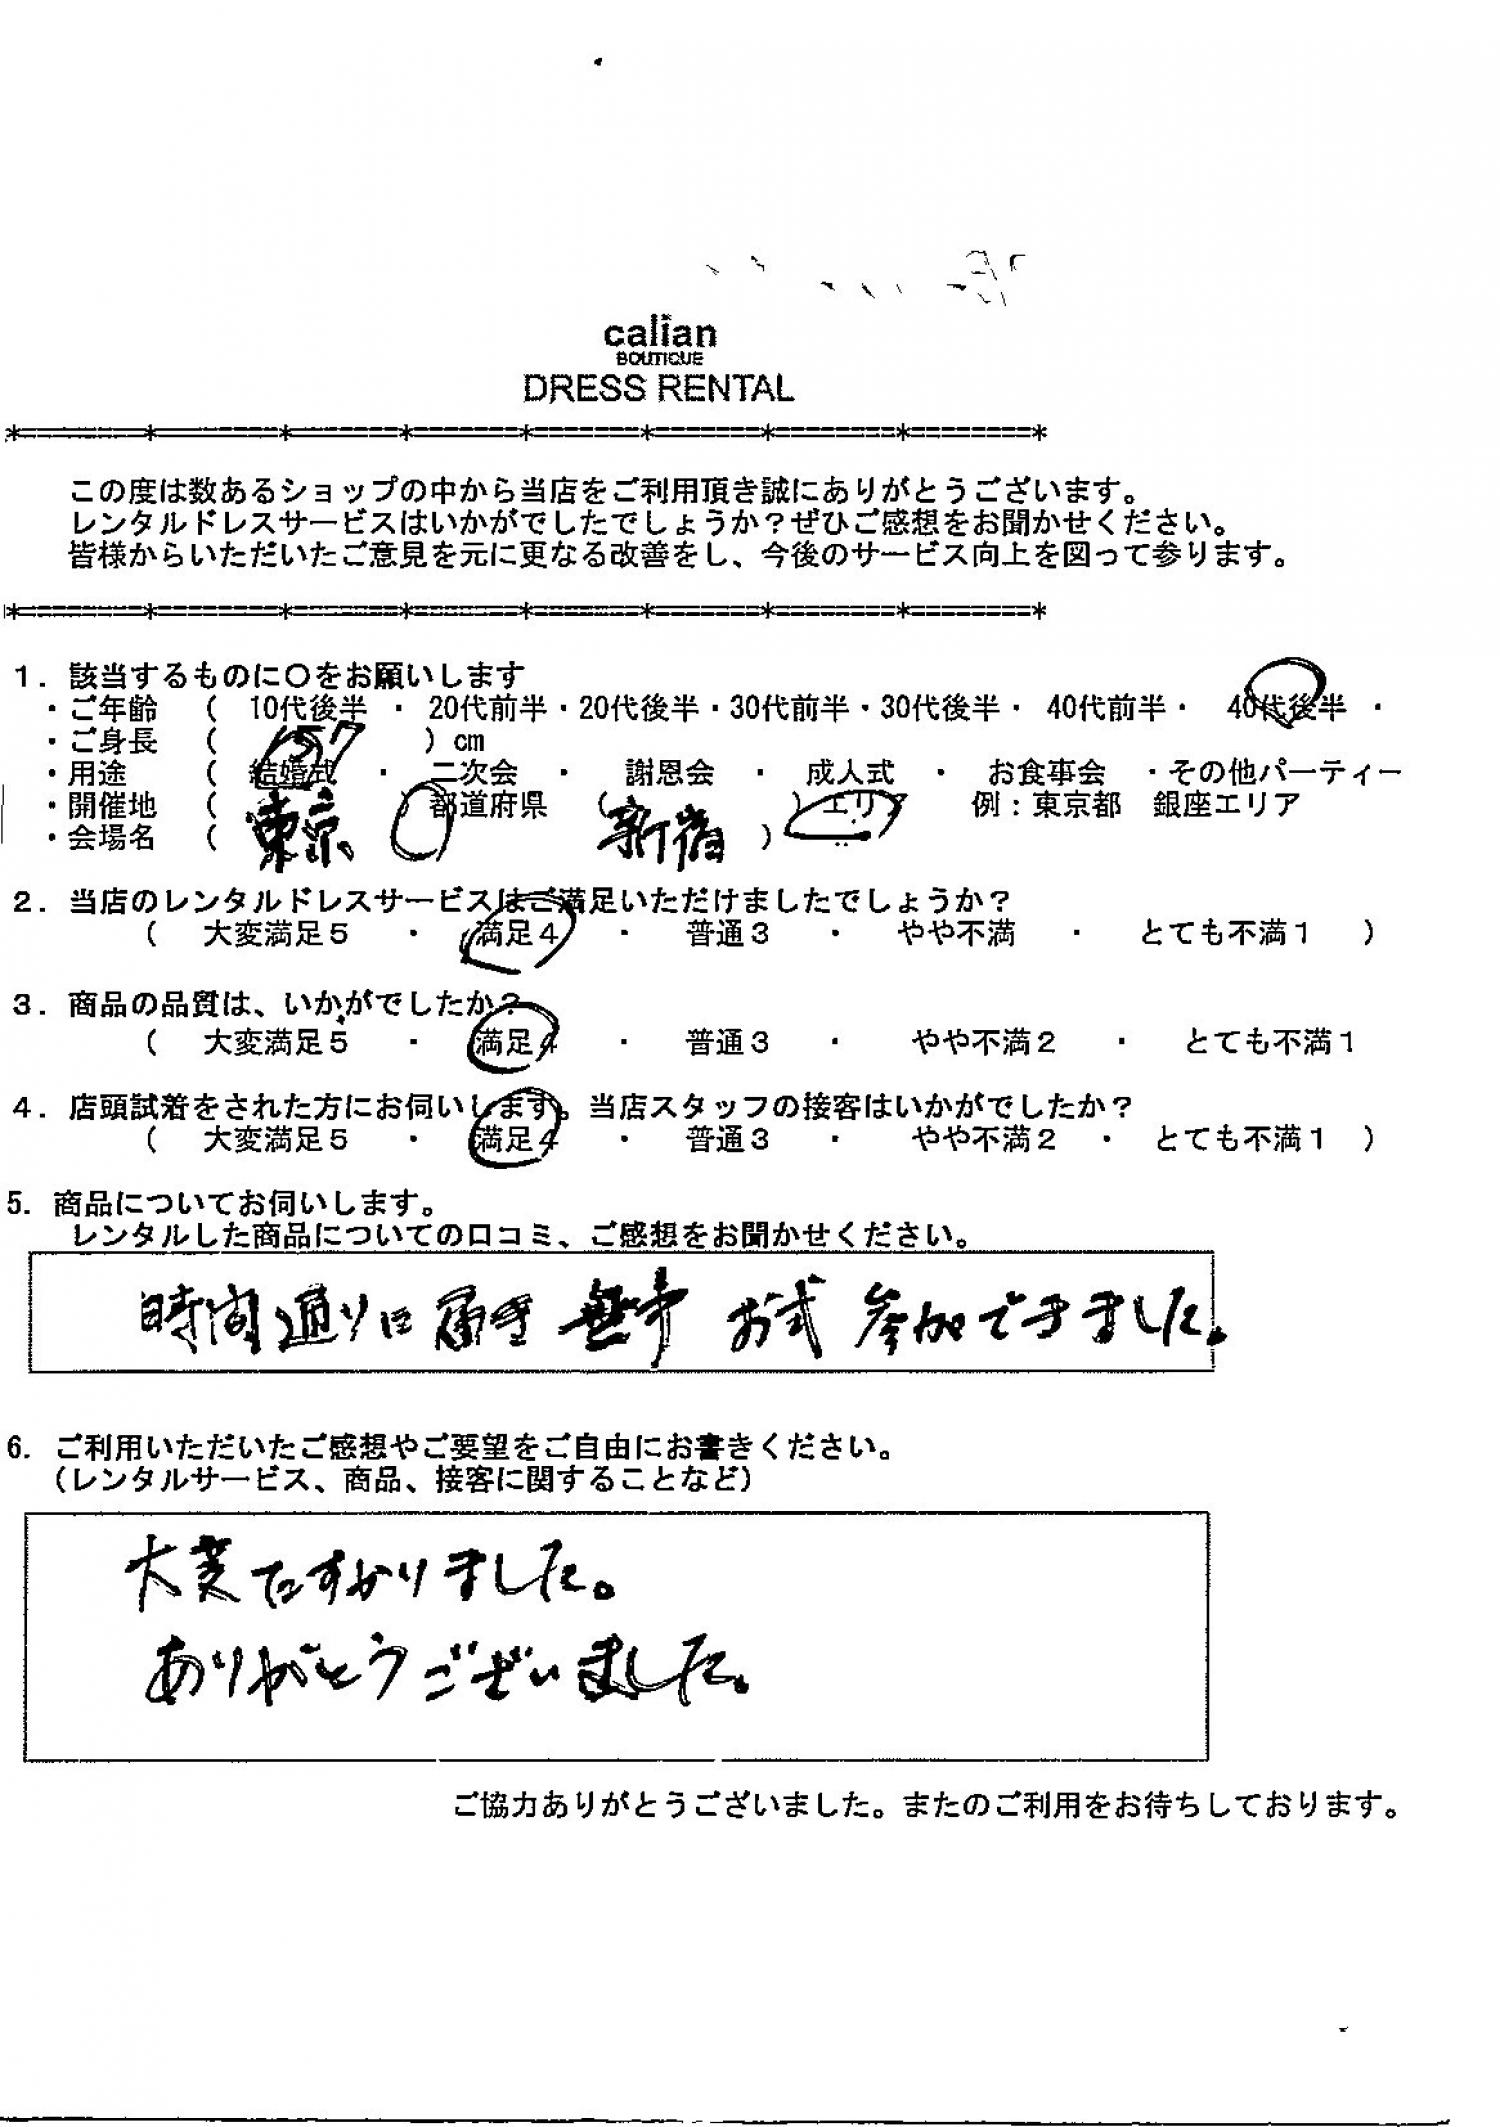 calian
BOUTIQUE
DRESS RENTAL
*========*========*========*========*========*========*========*========*
この度は数あるショップの中から当店をご利用頂き誠にありがとうございます。
レンタルドレスサービスはいかがでしたでしょうか？ぜひご感想をお聞かせください。
皆様からいただいたご意見を元に更なる改善をし、今後のサービス向上を図って参ります。
*========*========*========*========*========*========*========*========*
１．該当するものに〇をお願いします
・ご年齢 （ 10代後半 ・ 20代前半・20代後半・30代前半・30代後半・ 40代前半・ 40代後半 ・
・ご身長 （ 157 ）cm
・用途 （ 結婚式 ・ 二次会 ・ 謝恩会 ・ 成人式 ・ お食事会 ・その他パーティー
・開催地 （ 東京 ）都道府県 （ 新宿 ）エリア 例：東京都 銀座エリア
・会場名 （ ）
２．当店のレンタルドレスサービスはご満足いただけましたでしょうか？
（ 大変満足５ ・ 満足４ ・ 普通３ ・ やや不満 ・ とても不満１ ）
３．商品の品質は、いかがでしたか？
（ 大変満足５ ・ 満足４ ・ 普通３ ・ やや不満２ ・ とても不満１
４．店頭試着をされた方にお伺いします。当店スタッフの接客はいかがでしたか？
（ 大変満足５ ・ 満足４ ・ 普通３ ・ やや不満２ ・ とても不満１ ）
5. 商品についてお伺いします。
レンタルした商品についての口コミ、ご感想をお聞かせください。
時間通りに届き 無事 お式 参加できました。
6. ご利用いただいたご感想やご要望をご自由にお書きください。
（レンタルサービス、商品、接客に関することなど）
大変たすかりました。
ありがとうございました。
ご協力ありがとうございました。またのご利用をお待ちしております。